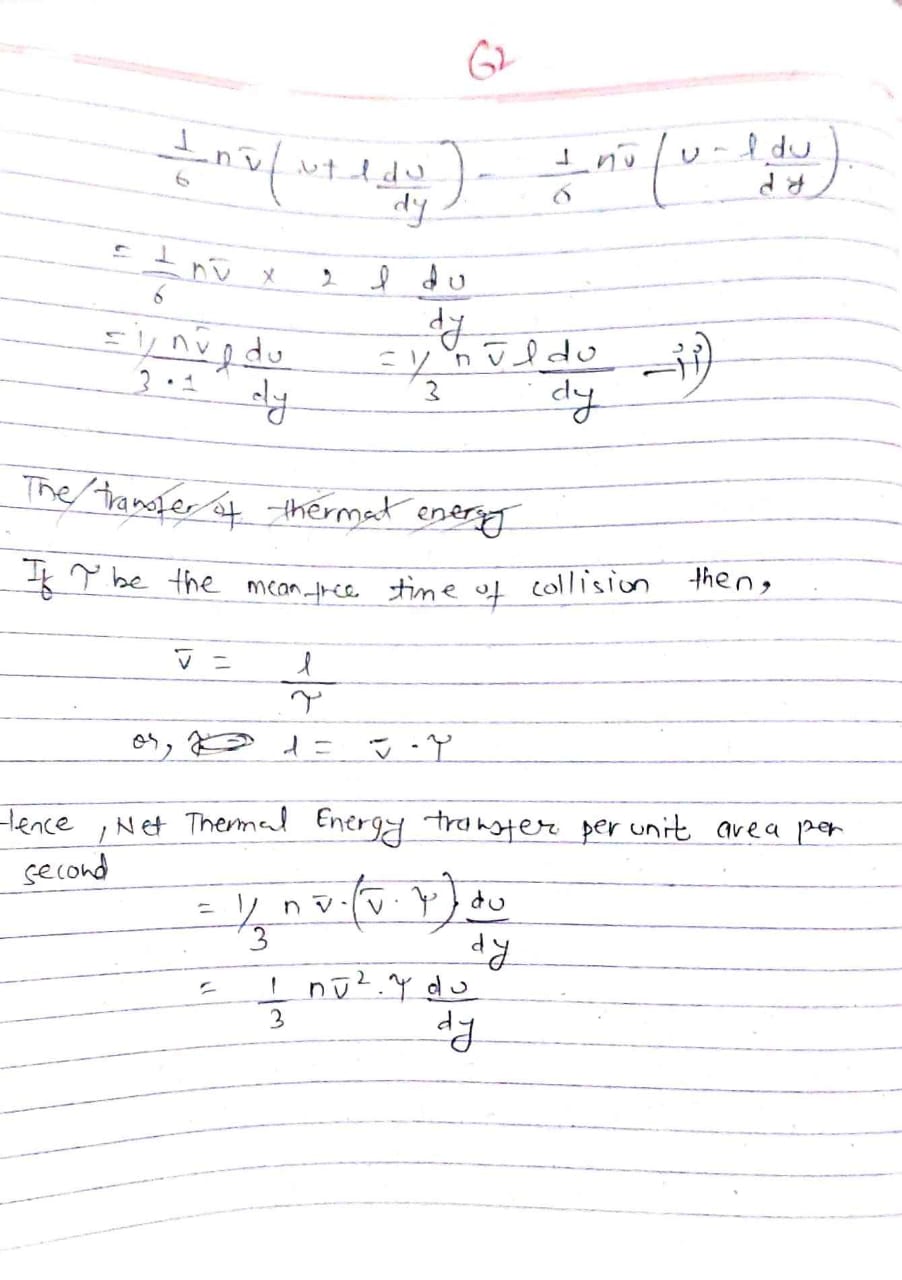 62
1/6 nv̄ (u + l du/dy) - 1/6 nv̄ (u - l du/dy).
= 1/6 nv̄ × 2 l du/dy
= 1/3·1 nv̄ l du/dy = 1/3 n v̄ l du/dy —ii)
The transfer of thermal energy
If τ be the mean free time of collision then,
v̄ = l/τ
or, l = v̄ · τ
Hence, Net Thermal Energy transfer per unit area per
second
= 1/3 n v̄·(v̄·τ) du/dy
= 1/3 nv̄². τ du/dy